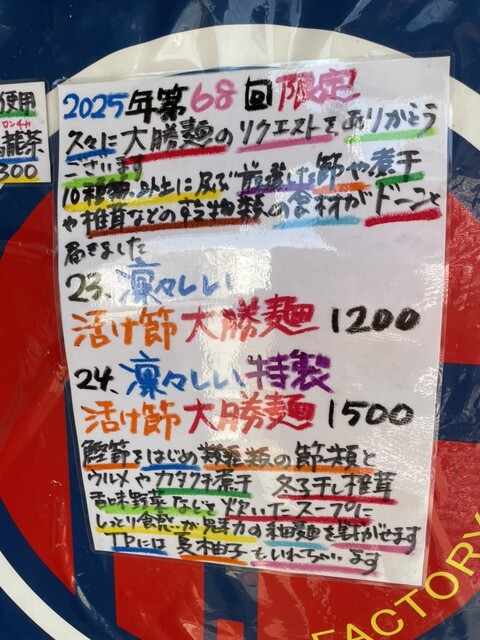 使用
龍茶
300
2025年第68回限定
久々に大勝麺のリクエストをありがとう
ございます
10種類以上に及ぶ厳選した節や煮干
や椎茸などの乾物類の食材がドーンと
届きました
23、凛々しい
活け節大勝麺 1200
24、凛々しい特製
活け節大勝麺 1500
鰹節をはじめ数種類の節類と
ウルメやカタクチ煮干 冬子干し椎茸
香味野菜などを炊いたスープに
しっとり食感が魅力の細麺を泳がせます
TPには夏柚子もいれちゃいます
FACTORY